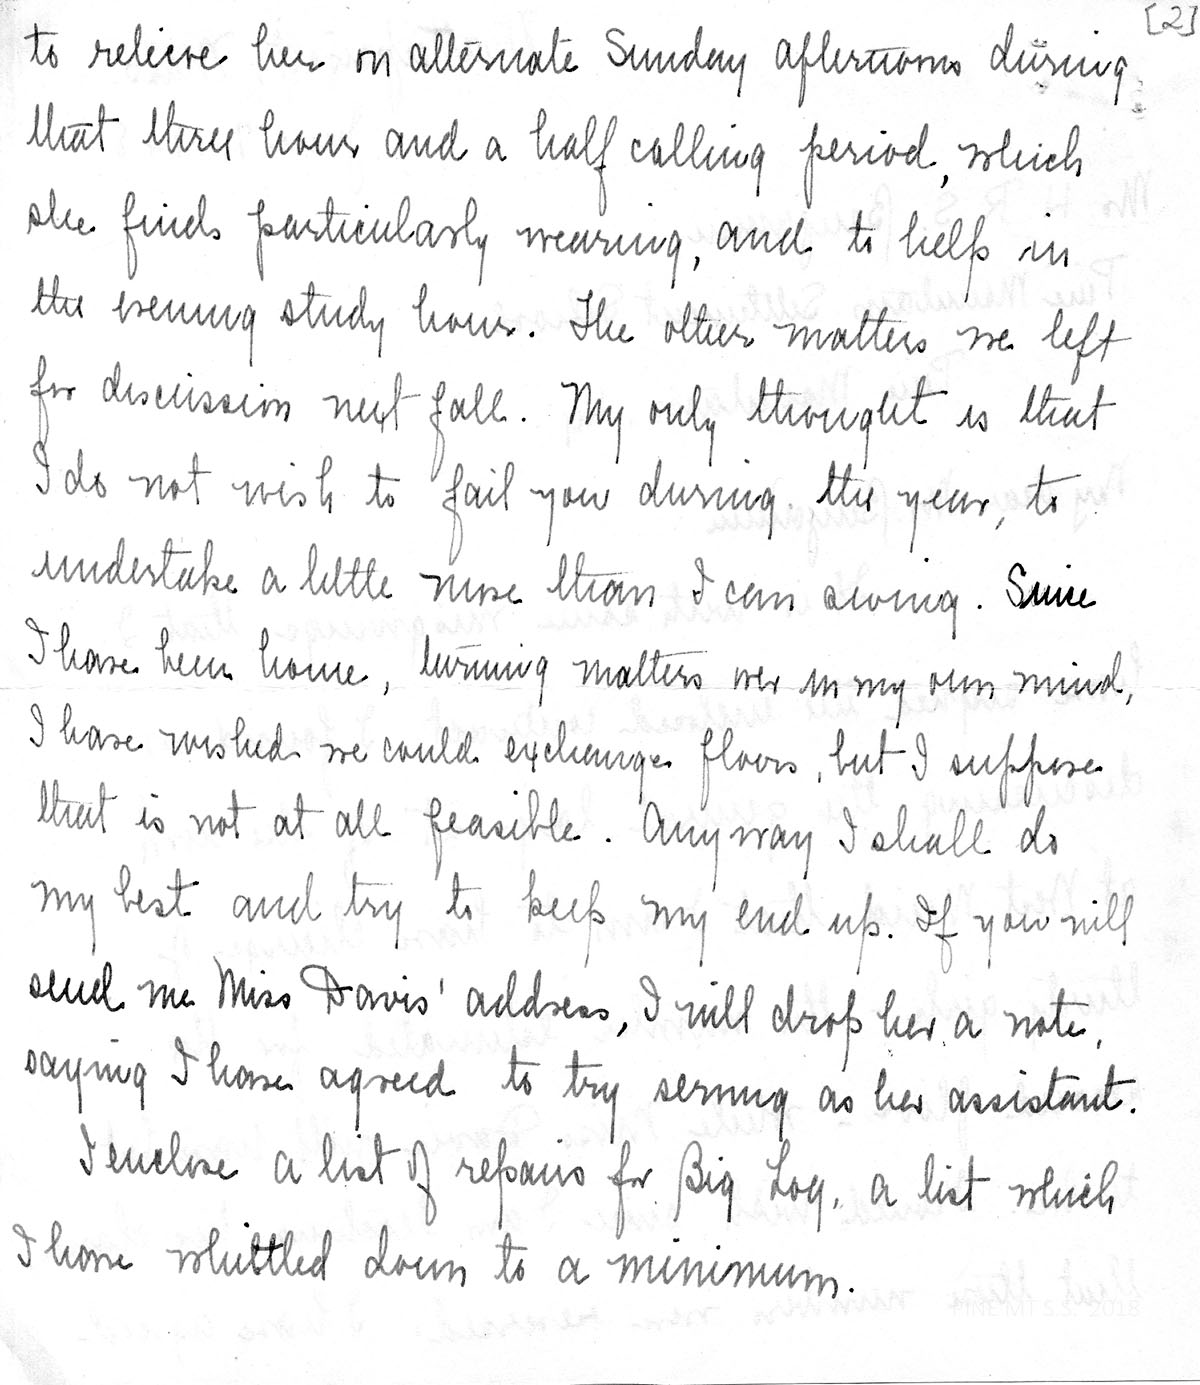 [2]
to relieve her on alternate Sunday afternoons during
that three hour and a half calling period, which
she finds particularly wearing, and to help in
the evening study hour. The other matters we left
for discussion next fall. My only thought is that
I do not wish to fail you during the year, to
undertake a little more than I can swing. Since
I have been home, turning matters over in my own mind,
I have wished we could exchange floors, but I suppose
that is not at all feasible. Anyway I shall do
my best and try to keep my end up. If you will
send me Miss Davis' address, I will drop her a note,
saying I have agreed to try serving as her assistant.
I enclose a list of repairs for Big Log, a list which
I have whittled down to a minimum.
PINE MT S.S. 2018